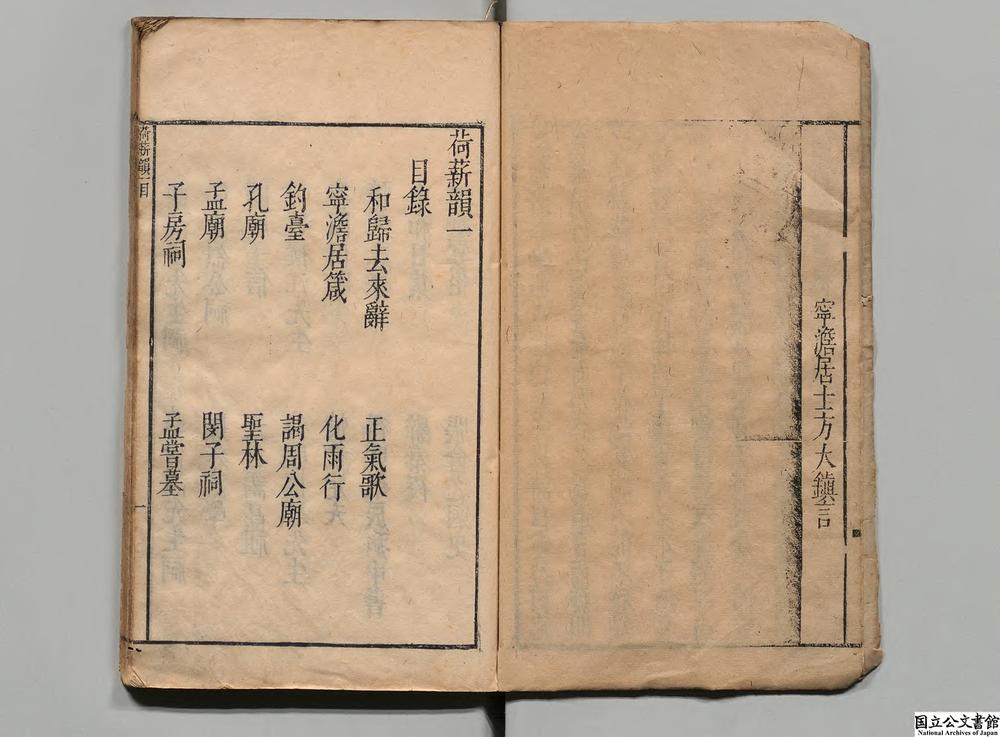 寧澹居士方大鎮言
荷薪韻一
目錄
和歸去來辭　正氣歌
寧澹居箴　化雨行
釣臺　謁周公廟
孔廟　聖林
孟廟　閔子祠
子房祠　孟嘗墓
荷薪韻一目　一
国立公文書館
National Archives of Japan